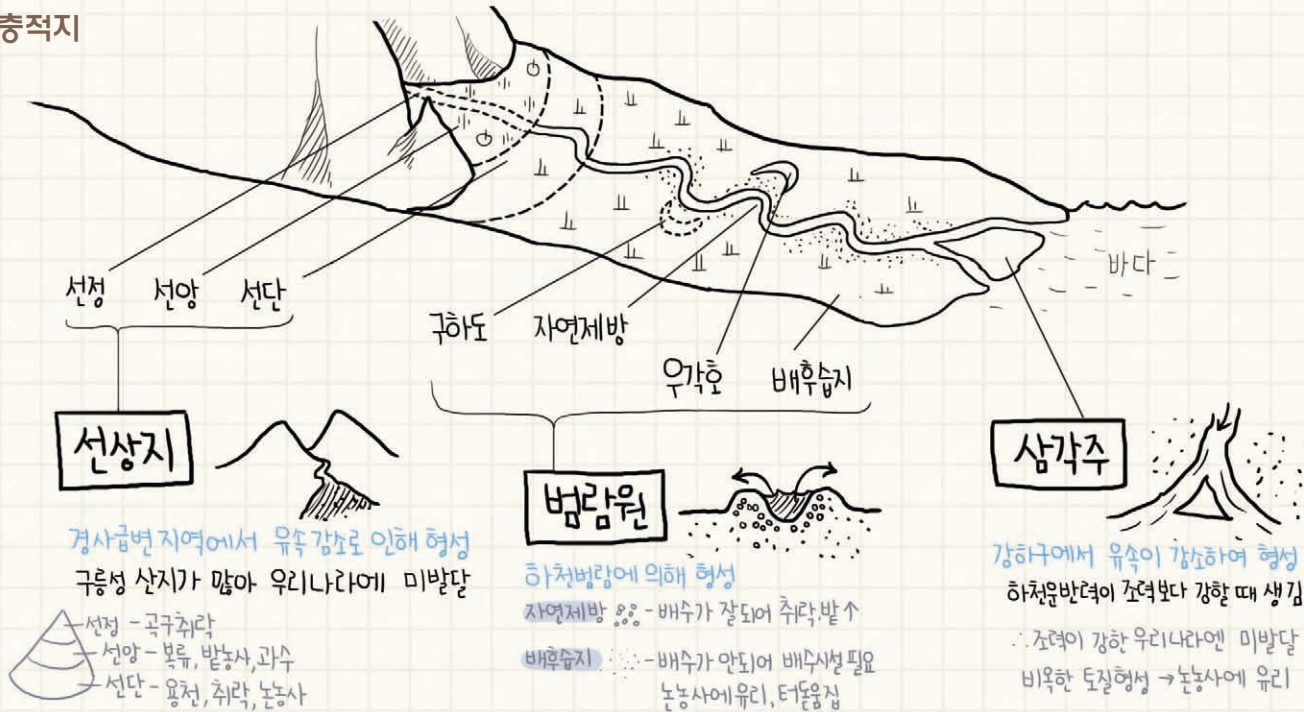 충적지
선정
선앙
선단
구하도
자연제방
우각호
배후습지
바다
선상지
경사급변 지역에서 유속 감소로 인해 형성
구릉성 산지가 많아 우리나라에 미발달
선정 - 곡구취락
선앙 - 복류, 밭농사, 과수
선단 - 용천, 취락, 논농사
범람원
하천범람에 의해 형성
자연제방 - 배수가 잘되어 취락, 밭↑
배후습지 - 배수가 안되어 배수시설 필요
논농사에 유리, 터돋움집
삼각주
강하구에서 유속이 감소하여 형성
하천운반력이 조력보다 강할 때 생김
∴조력이 강한 우리나라엔 미발달
비옥한 토질형성 → 논농사에 유리